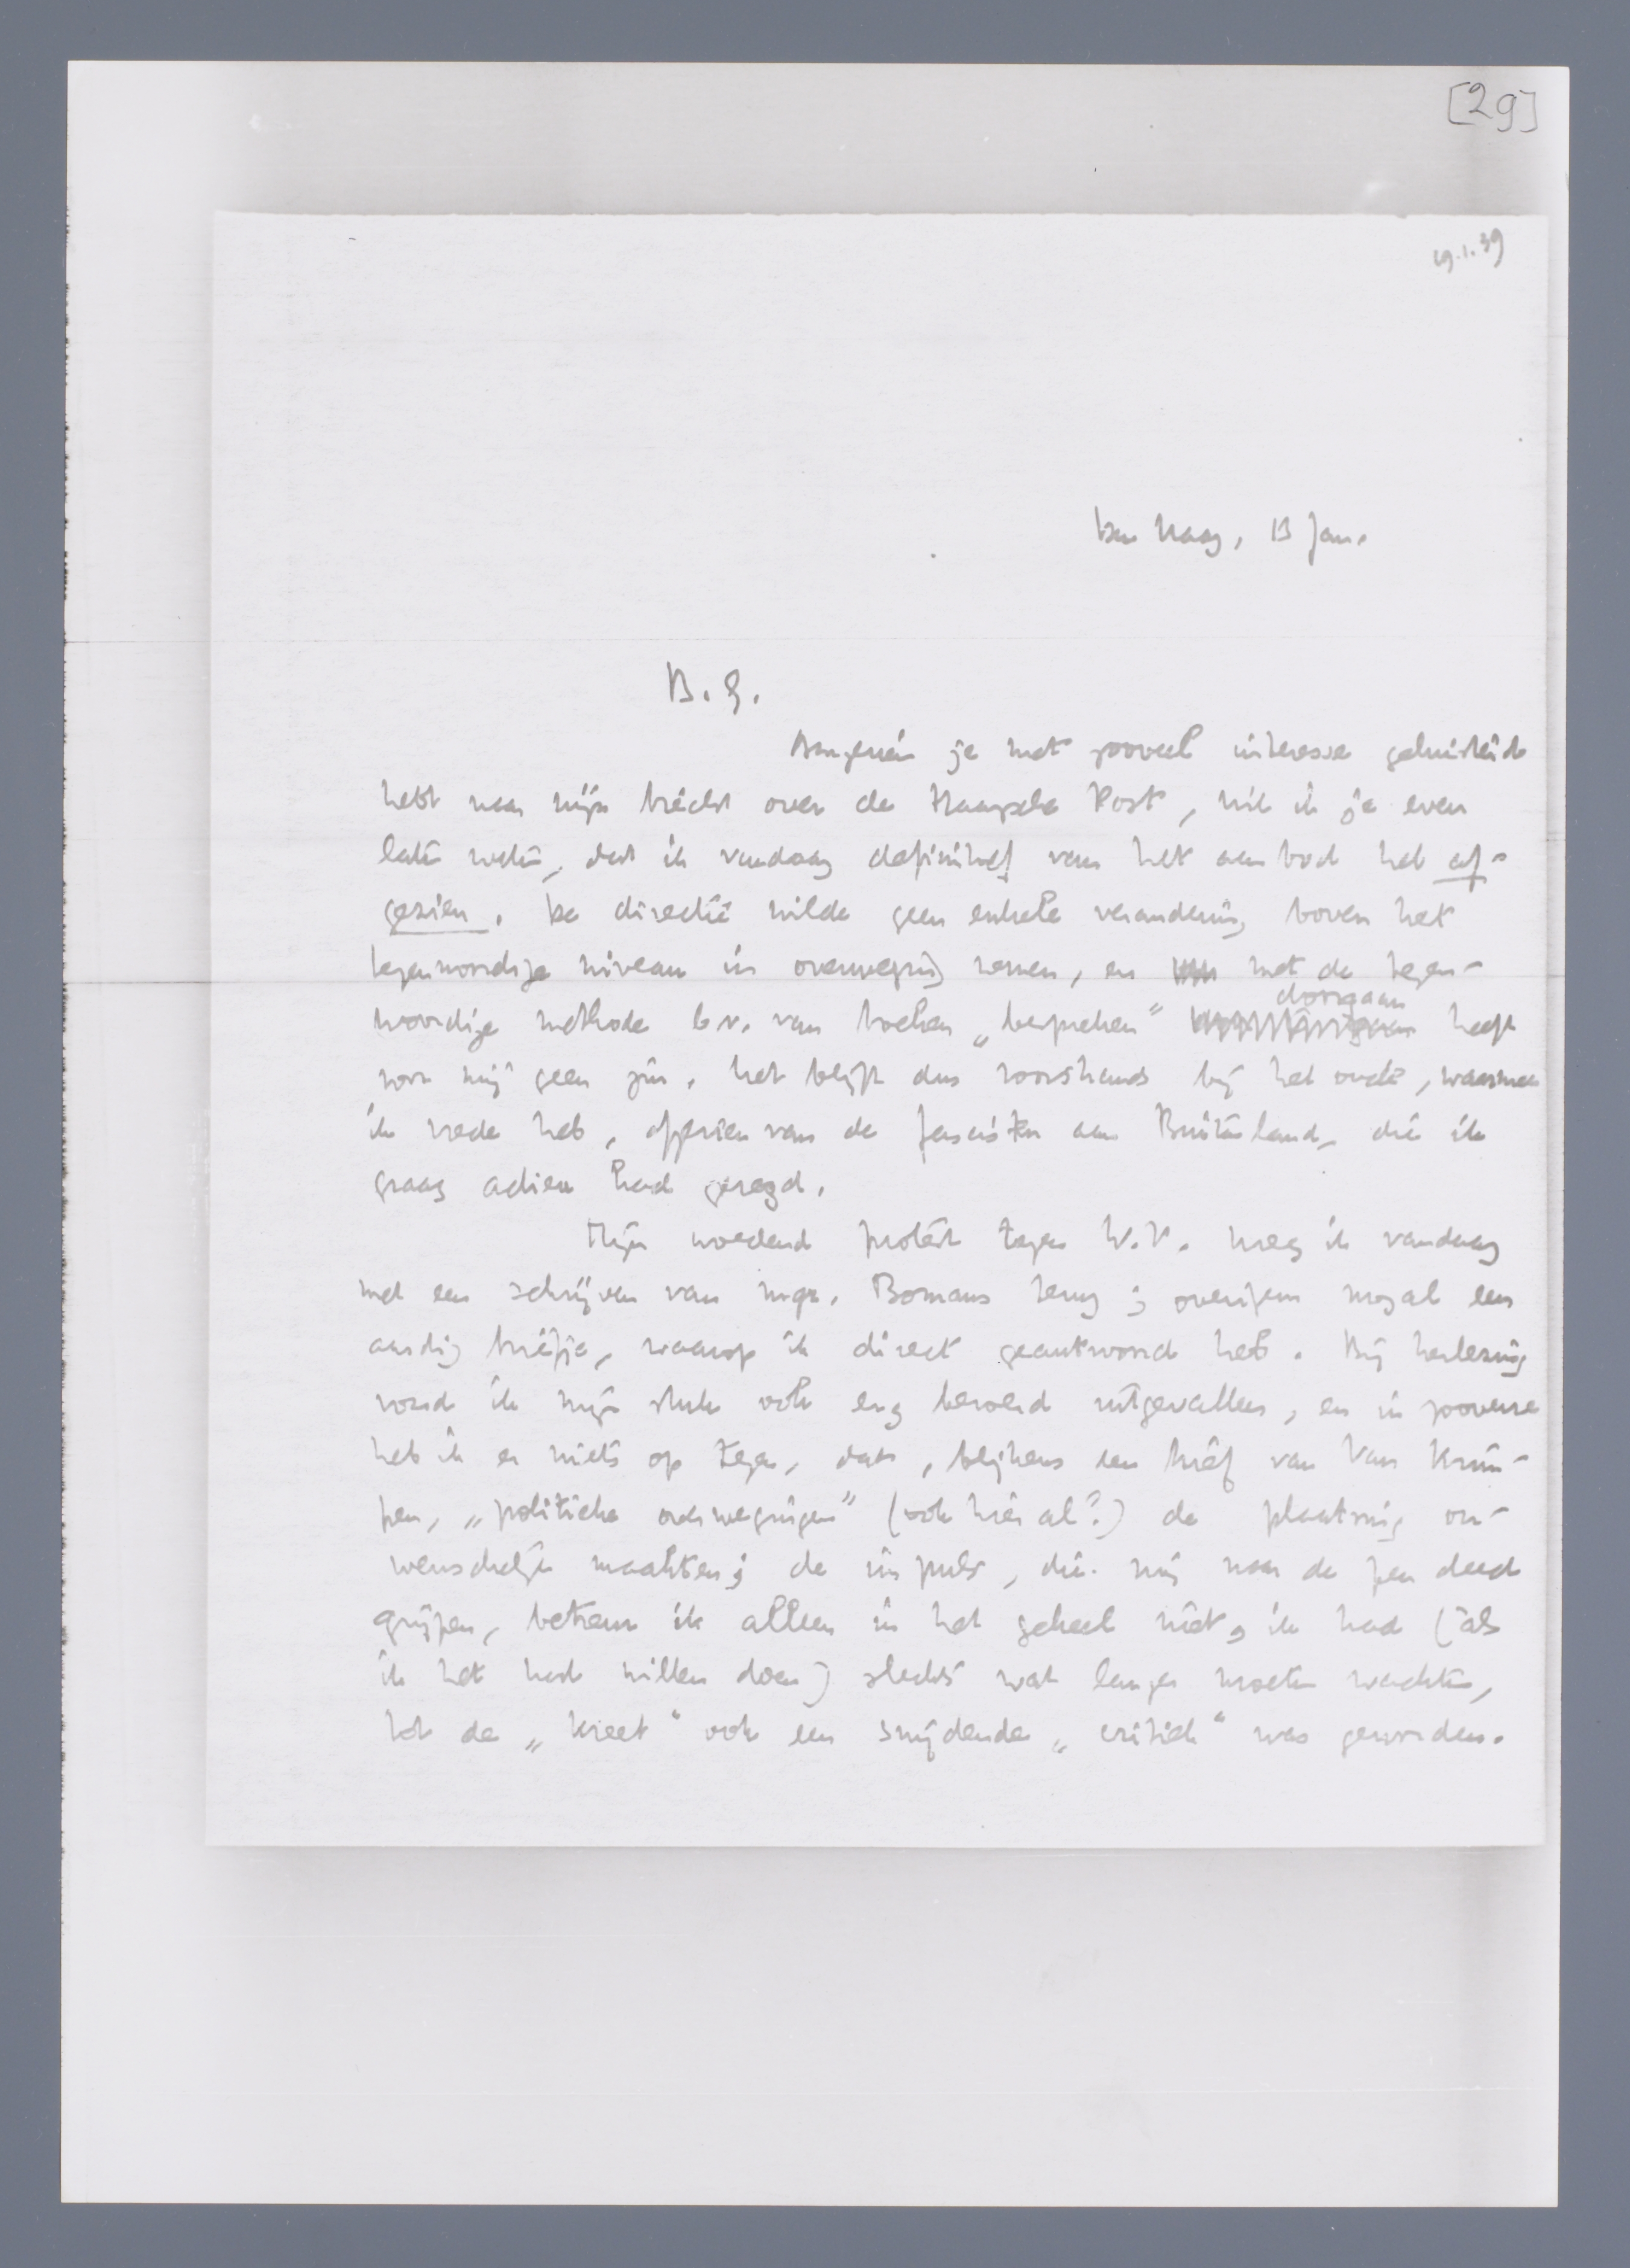 [29]
19.1.39
Den Haag, 13 Jan.
B. G.
Aangezien je met zooveel interesse geluisterd
hebt naar mijn bericht over de Haagsche Post, wil ik je even
laten weten, dat ik vandaag definitief van het aanbod heb af-
gezien. De directie wilde geen enkele verandering boven het
tegenwoordige niveau in overweging nemen, en met de tegen-
woordige methode b.v. van boeken „bespreken" doorgaan heeft
voor mij geen zin. Het blijft dus voorshands bij het oude, waarmee
ik vrede heb, afgezien van de fascisten aan Buitenland, die ik
graag adieu had gezegd.
Mijn woedend protest tegen W.V. kreeg ik vandaag
met een schrijven van mgr. Bomans terug; overigens nogal een
aardig briefje, waarop ik direct geantwoord heb. Bij herlezing
vond ik mijn stuk ook erg beroerd uitgevallen, en in zooverre
heb ik er niets op tegen, dat, blijkens een brief van Van Krim-
pen, „politieke overwegingen" (ook hier al?) de plaatsing on-
wenschelijk maakten; de impuls, die mij naar de pen deed
grijpen, betreur ik alleen in het geheel niet, ik had (als
ik het had willen doen) slechts wat langer moeten wachten,
tot de „kreet" ook een snijdende „critiek" was geworden.